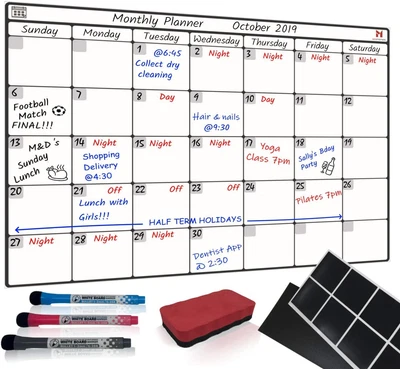 Monthly Planner October 2019
Sunday Monday Tuesday Wednesday Thursday Friday Saturday
1 @6:45 2 Night 3 Night 4 Night 5 Night
Collect dry
cleaning
6 7 8 Day 9 10 Day 11 12
Football
Match
FINAL!!!
Hair & nails
@9:30
13 14 Night 15 Night 16 Night 17 Yoga 18 19
M&D's
Sunday
Lunch
Shopping
Delivery
@4:30
Class 7pm
Sally's Bday
Party
20 21 Off 22 Off 23 Off 24 25 26
Lunch with
Girls!!!
Pilates 7pm
HALF TERM HOLIDAYS
27 Night 28 Night 29 Night 30 31
Dentist App
@ 2:30
WHITE BOARD
WHITE BOARD
WHITE BOARD